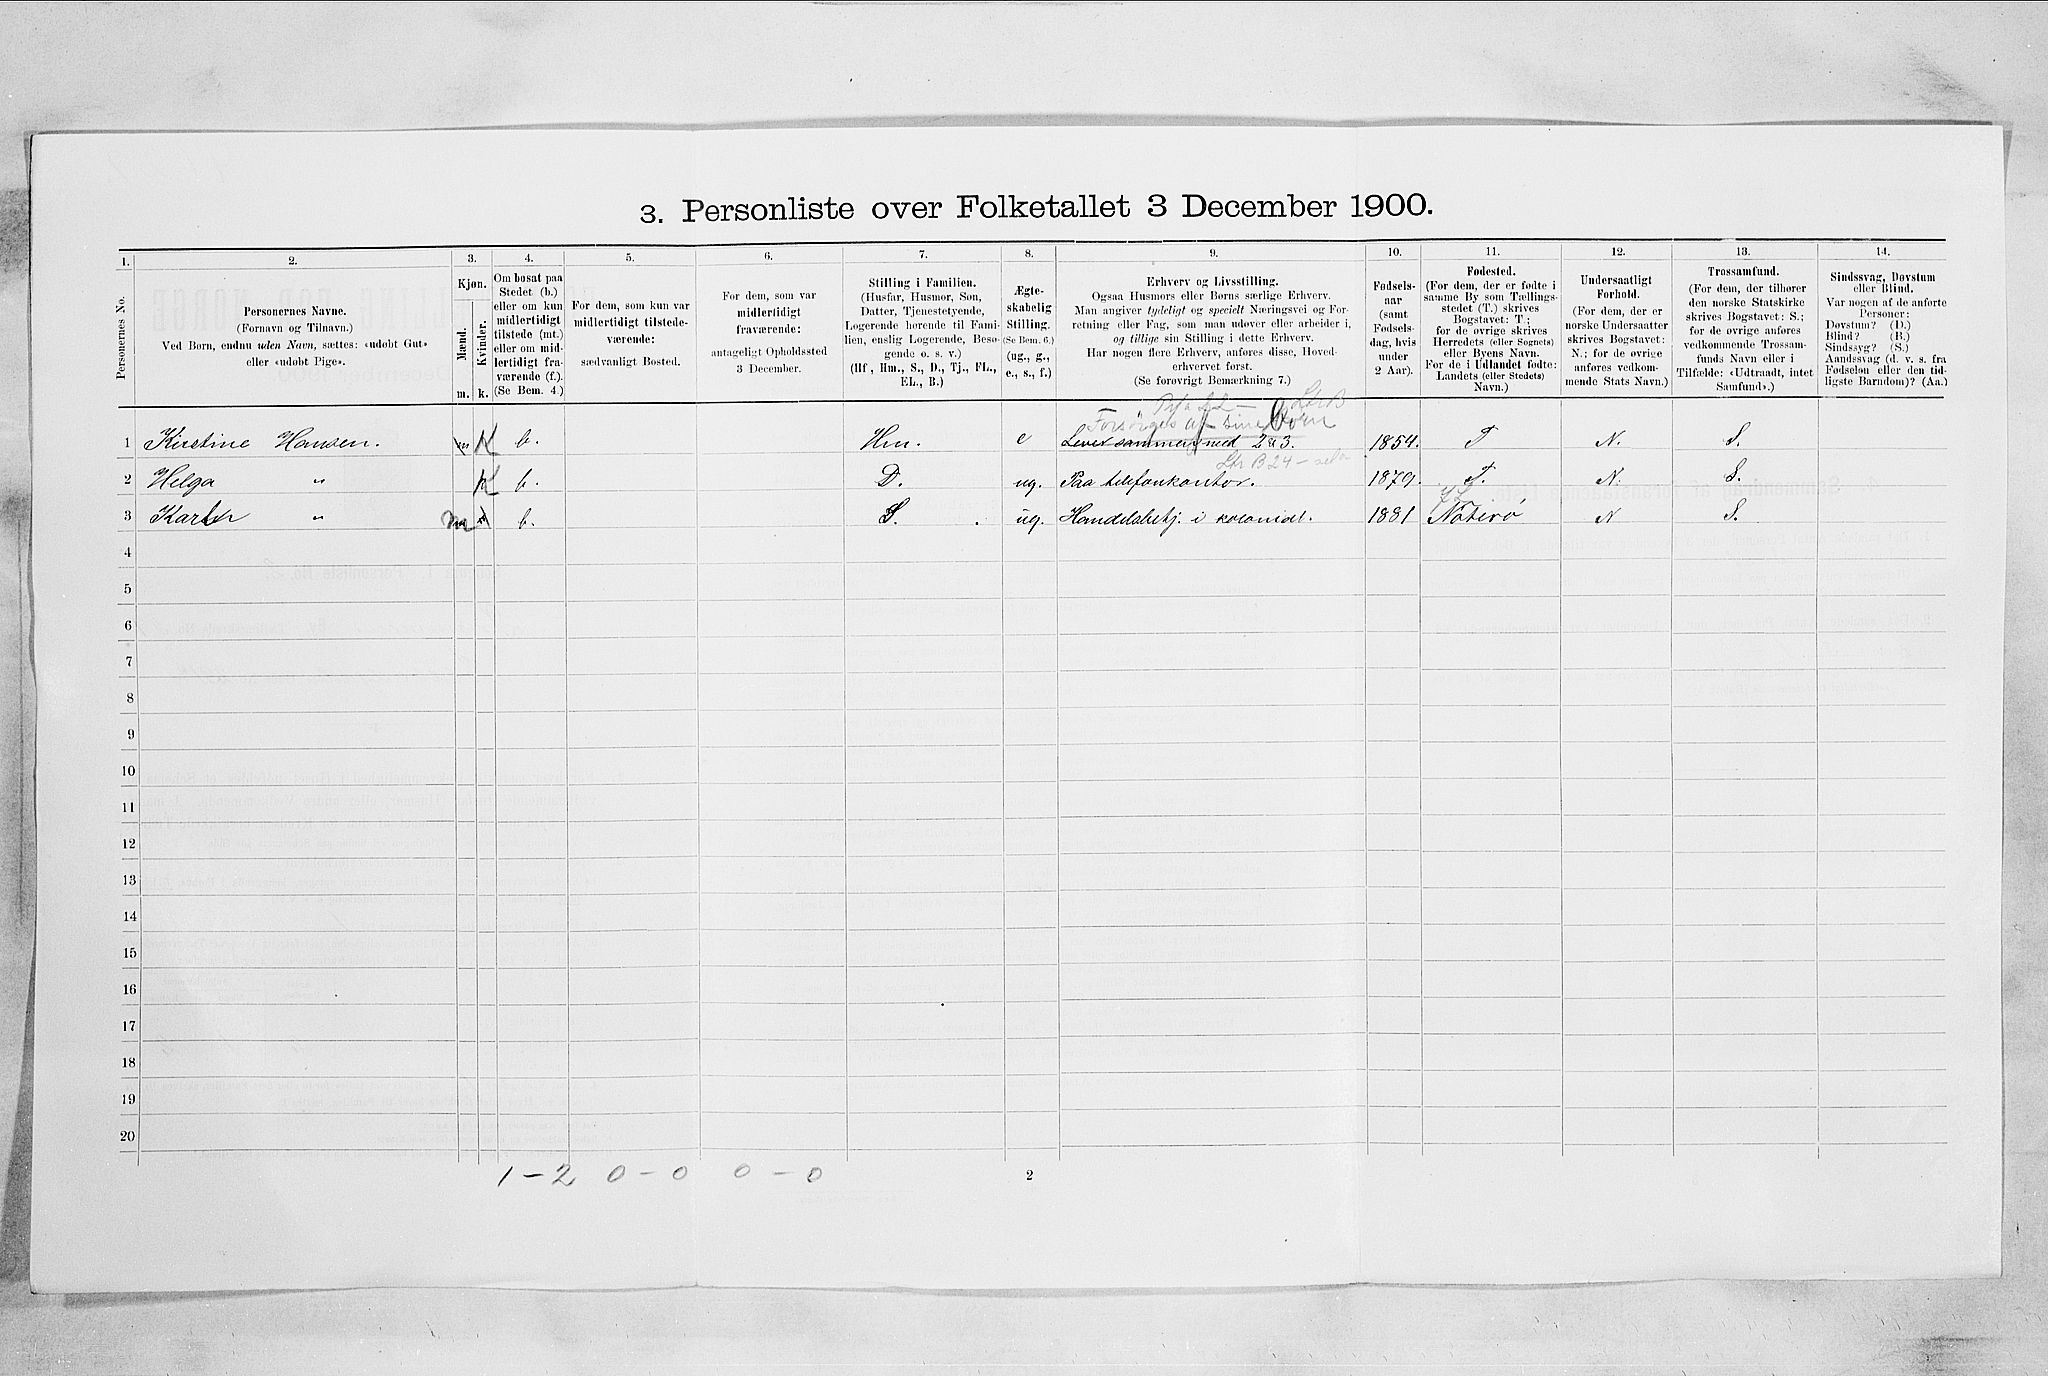 3. Personliste over Folketallet 3 December 1900.
1. 2. 3. 4. 5. 6. 7. 8. 9. 10. 11. 12. 13. 14.
Personernes No.
Personernes Navne.
(Fornavn og Tilnavn.)
Ved Børn, endnu uden Navn, sættes: «udøbt Gut»
eller «udøbt Pige».
Kjøn.
Mænd.
Kvinder.
m. k.
Om bosat paa
Stedet (b.)
eller om kun
midlertidigt
tilstede (mt.)
eller om mid-
lertidigt fra-
værende (f.).
(Se Bem. 4.)
For dem, som kun var
midlertidigt tilstede-
værende:
sædvanligt Bosted.
For dem, som var
midlertidigt
fraværende:
antageligt Opholdssted
3 December.
Stilling i Familien.
(Husfar, Husmor, Søn,
Datter, Tjenestetyende,
Logerende hørende til Fami-
lien, enslig Logerende, Besø-
gende o. s. v.)
(Hf., Hm., S., D., Tj., FL.,
EL., B.)
Ægte-
skabelig
Stilling.
(Se Bem. 6.)
(ug., g.,
e., s., f.)
Erhverv og Livsstilling.
Ogsaa Husmors eller Børns særlige Erhverv.
Man angiver tydeligt og specielt Næringsvei og For-
retning eller Fag, som man udøver eller arbeider i,
og tillige sin Stilling i dette Erhverv.
Har nogen flere Erhverv, anføres disse, Hoved-
erhvervet først.
(Se forøvrigt Bemærkning 7.)
Fødsels-
aar
(samt
Fødsels-
dag, hvis
under
2 Aar).
Fødested.
(For dem, der er fødte i
samme By som Tællings-
stedet (T.) skrives
Bogstavet: T.;
for de øvrige skrives
Herredets (eller Sognets)
eller Byens Navn.
For de i Udlandet fødte:
Landets (eller Stedets)
Navn.)
Undersaatligt
Forhold.
(For dem, der er
norske Undersaatter
skrives Bogstavet:
N.; for de øvrige
anføres vedkom-
mende Stats Navn.)
Trossamfund.
(For dem, der tilhører
den norske Statskirke
skrives Bogstavet: S.;
for de øvrige anføres
vedkommende Trossam-
funds Navn eller i
Tilfælde: «Udtraadt, intet
Samfund».)
Sindssvag, Døvstum
eller Blind.
Var nogen af de anførte
Personer:
Døvstum? (D.)
Blind? (B.)
Sindssyg? (S.)
Aandssvag (d. v. s. fra
Fødselen eller den tid-
ligste Barndom)? (Aa.)
Forsørges af sine Børn
1 Kirstine Hansen. m K b. Hm. e Lever sammen med 2 & 3. 1854. T N. S.
Ltr B 24
2 Helga " K b. D. ug. Paa telefonkontor. 1879. T. N. S.
3 Karl " m b. S. ug. Handelsbetj. i kolonial. 1881 Nøterø N S.
4
5
6
7
8
9
10
11
12
13
14
15
16
17
18
19
20
1 - 2 0 - 0 0 - 0
2